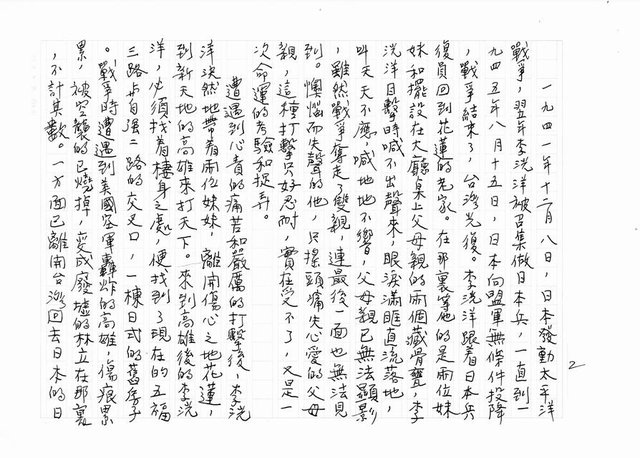 2
一九四一年十二月八日，日本發動太平洋
戰爭，翌年李洗洋被召集做日本兵，一直到一
九四五年八月十五日，日本向盟軍無條件投降
，戰爭結束了，台灣光復。李洗洋跟着日本兵
復員回到花蓮的老家。在那裏等他的是兩位妹
妹和擺設在大廳桌上父母親的兩個藏骨甕，李
洗洋目擊時喊不出聲來，眼淚滿眶直流落地，
叫天天不應，喊地地不響，父母親已無法顯影
，雖然戰爭奪走了雙親，連最後一面也無法見
到。懊惱而失聲的他，只搥頭痛失心愛的父母
親，這種打擊只好忍耐，實在受不了，又是一
次命運的考驗和捉弄。
遭遇到心責的痛苦和嚴厲的打擊後，李洗
洋決然地帶着兩位妹妹，離開傷心之地花蓮，
到新天地的高雄來打天下。來到高雄後的李洗
洋，必須找着棲身之處，便找到了現在的五福
三路與自强二路的交叉口，一棟日式的舊房子
。戰爭時遭遇到美國空軍轟炸的高雄，傷痕累
累，被空襲的已燒掉，變成廢墟的林立在那裏
，不計其數。一方面已離開台灣回去日本的日